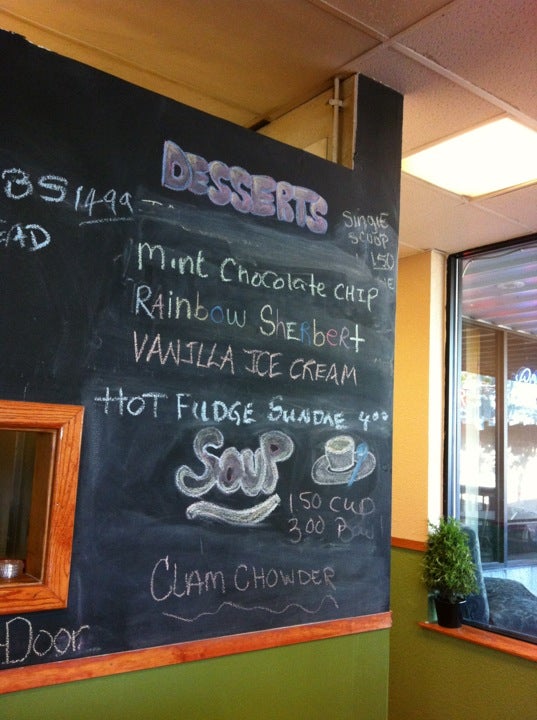 BS 1499
EAD
DESSERTS
SINGLE
SCOOP
1.50
Mint Chocolate CHIP
RAinbow SherberT
VANILLA ICE CREAM
HOT FUDGE SUNDAE 4.00
SOUP
1.50 CUP
3.00 Bowl
CLAM CHOWDER
Door